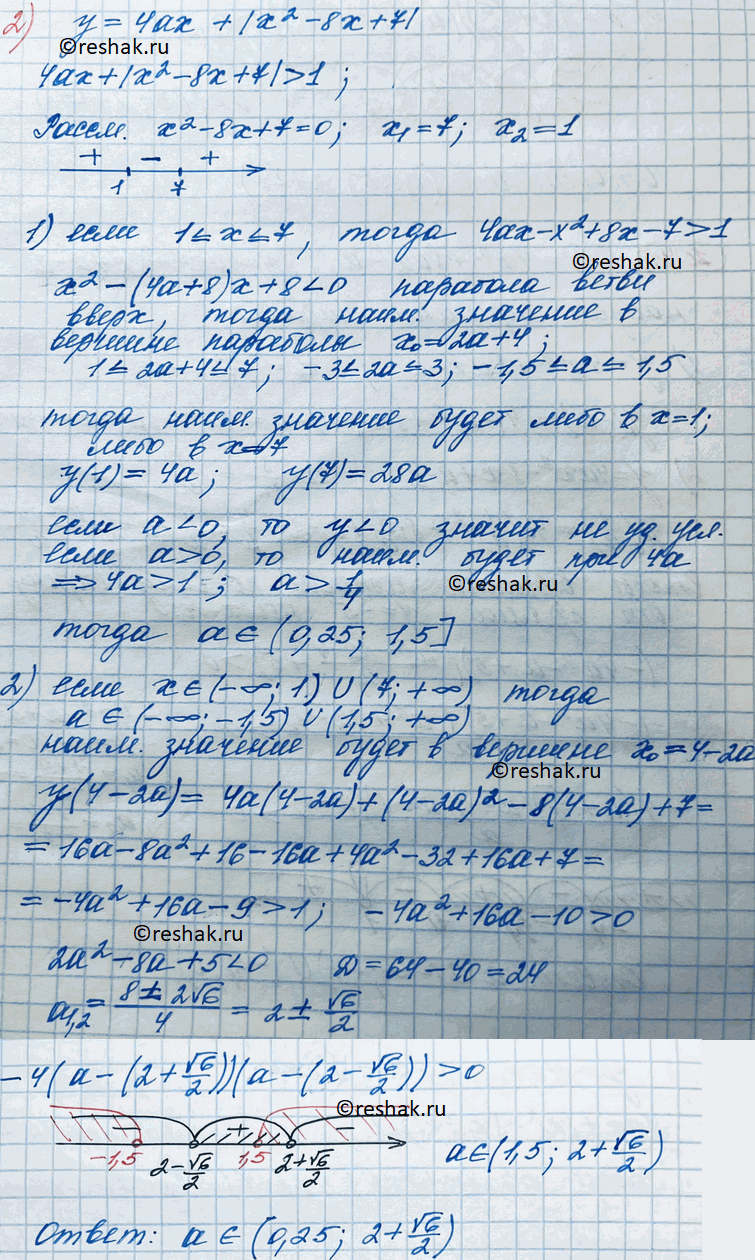 2) y = 4ax + |x² - 8x + 7|
©reshak.ru
4ax + |x² - 8x + 7| > 1 ;
Рассм. x² - 8x + 7 = 0 ; x₁ = 7 ; x₂ = 1
+ − +
1 7
©reshak.ru
1) если 1 ≤ x ≤ 7, тогда 4ax - x² + 8x - 7 > 1
©reshak.ru
x² - (4a + 8)x + 8 < 0 парабола ветви
вверх, тогда наим. значение в
вершине параболы x₀ = 2a + 4 ;
1 ≤ 2a + 4 ≤ 7 ; -3 ≤ 2a ≤ 3 ; -1,5 ≤ a ≤ 1,5
тогда наим. значение будет либо в x = 1 ;
либо в x = 7
y(1) = 4a ; y(7) = 28a
если a < 0, то y < 0 значит не уд. усл.
если a > 0, то наим. будет при 4a
⇒ 4a > 1 ; a > 1/4
©reshak.ru
тогда a ∈ (0,25 ; 1,5]
2) если x ∈ (-∞ ; 1) ∪ (7 ; +∞) тогда
a ∈ (-∞ ; -1,5) ∪ (1,5 ; +∞)
наим. значение будет в вершине x₀ = 4 - 2a
©reshak.ru
y(4 - 2a) = 4a(4 - 2a) + (4 - 2a)² - 8(4 - 2a) + 7 =
= 16a - 8a² + 16 - 16a + 4a² - 32 + 16a + 7 =
= -4a² + 16a - 9 > 1 ; -4a² + 16a - 10 > 0
©reshak.ru
2a² - 8a + 5 < 0 D = 64 - 40 = 24
a₁,₂ = (8 ± 2√6)/4 = 2 ± √6/2
-4(a - (2 + √6/2))(a - (2 - √6/2)) > 0
©reshak.ru
− + −
-1,5 2 - √6/2 1,5 2 + √6/2 a ∈ (1,5 ; 2 + √6/2)
©reshak.ru
Ответ: a ∈ (0,25 ; 2 + √6/2)